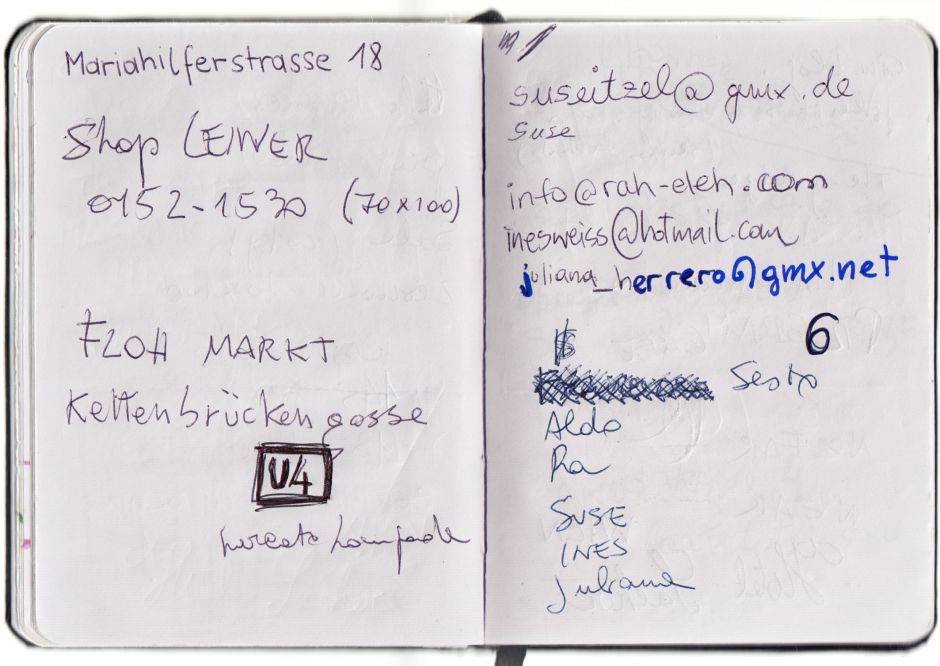 Mariahilferstrasse 18
Shop LEINER
0152-1530 (70x100)
FLOH MARKT
Kettenbrückengasse
U4
suseitzel@gmx.de
Suse
info@rah-eleh.com
inesweiss@hotmail.com
juliana_herrero@gmx.net
6
Sesto
Aldo
Ra
SUSE
INES
Juliana